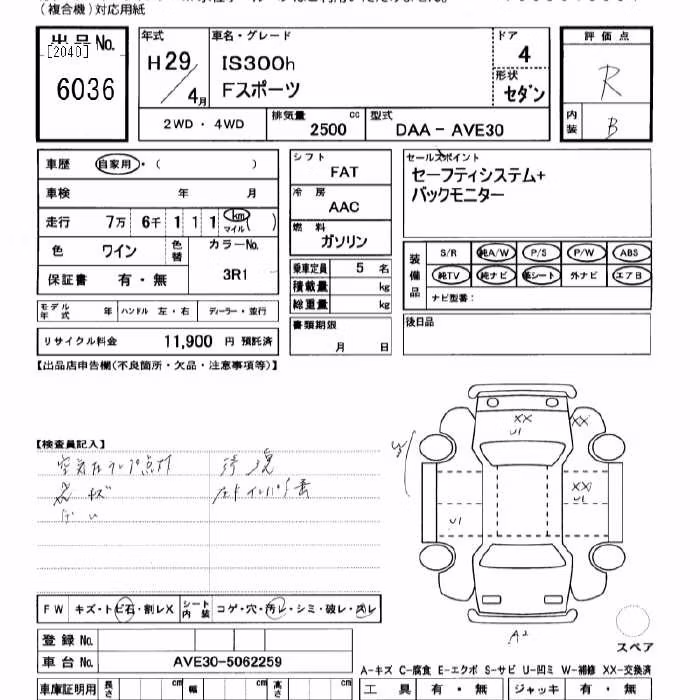 (複合機)対応用紙
出品No.
[2040]
6036
年式
H29/4月
車名・グレード
IS300h
Fスポーツ
ドア
4
形状
セダン
評価点
R
内装
B
2WD・4WD
排気量
2500 cc
型式
DAA-AVE30
車歴 自家用・( )
車検 年 月
走行 7万 6千 1 1 1 km マイル ( )
色 ワイン 色替 カラーNo. 3R1
保証書 有・無
モデル年式 年 ハンドル 左・右 ディーラー・並行
リサイクル料金 11,900 円 預託済
シフト
FAT
冷房
AAC
燃料
ガソリン
乗車定員 5 名
積載量 kg
総重量 kg
書類期限
月 日
セールスポイント
セーフティシステム+
バックモニター
装備品
S/R 純A/W P/S P/W ABS
純TV 純ナビ 革シート 外ナビ エアB
ナビ型番:
後日品
【出品店申告欄(不良箇所・欠品・注意事項等)】
【検査員記入】
XX
U1
XX
XX
U1
U1
A2
スペア
FW キズ・トビ石・割レX シート内装 コゲ・穴・汚レ・シミ・破レ・スレ
登録No.
車台No. AVE30-5062259
車庫証明用 長さ cm 幅 cm 高さ cm
A-キズ C-腐食 E-エクボ S-サビ U-凹ミ W-補修 XX-交換済
工具 有・無 ジャッキ 有・無